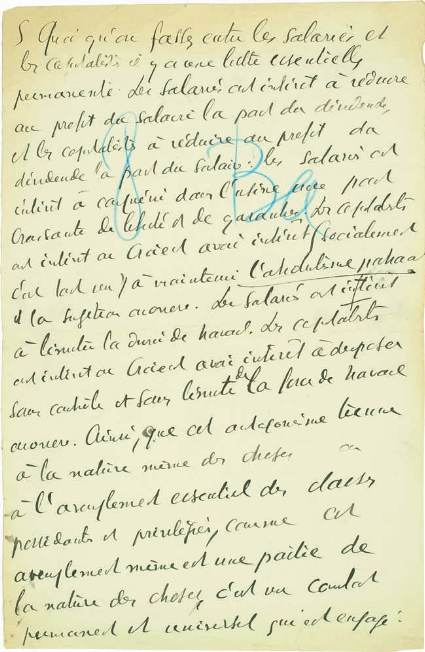 Quoi qu'on fasse, entre les salariés et
les capitalistes il y a une lutte essentielle
permanente. Les salariés ont intérêt à réduire
au profit du salaire la part du dividende,
et les capitalistes à réduire au profit du
dividende la part du salaire : les salariés ont
intérêt à conquérir dans l'usine une part
croissante de liberté et de garanties. Les capitalistes
ont intérêt ou croient avoir intérêt (socialement
c'est tout un) à maintenir l'absolutisme patronal
et la sujétion ouvrière. Les salariés ont intérêt
à limiter la durée de travail. Les capitalistes
ont intérêt ou croient avoir intérêt à disposer
sans contrôle et sans limite de la force de travail
ouvrière. Ainsi, que cet antagonisme tienne
à la nature même des choses ou
à l'aveuglement essentiel des classes
possédantes et privilégiées, comme cet
aveuglement même est une partie de
la nature des choses, c'est un combat
permanent et universel qui est engagé.